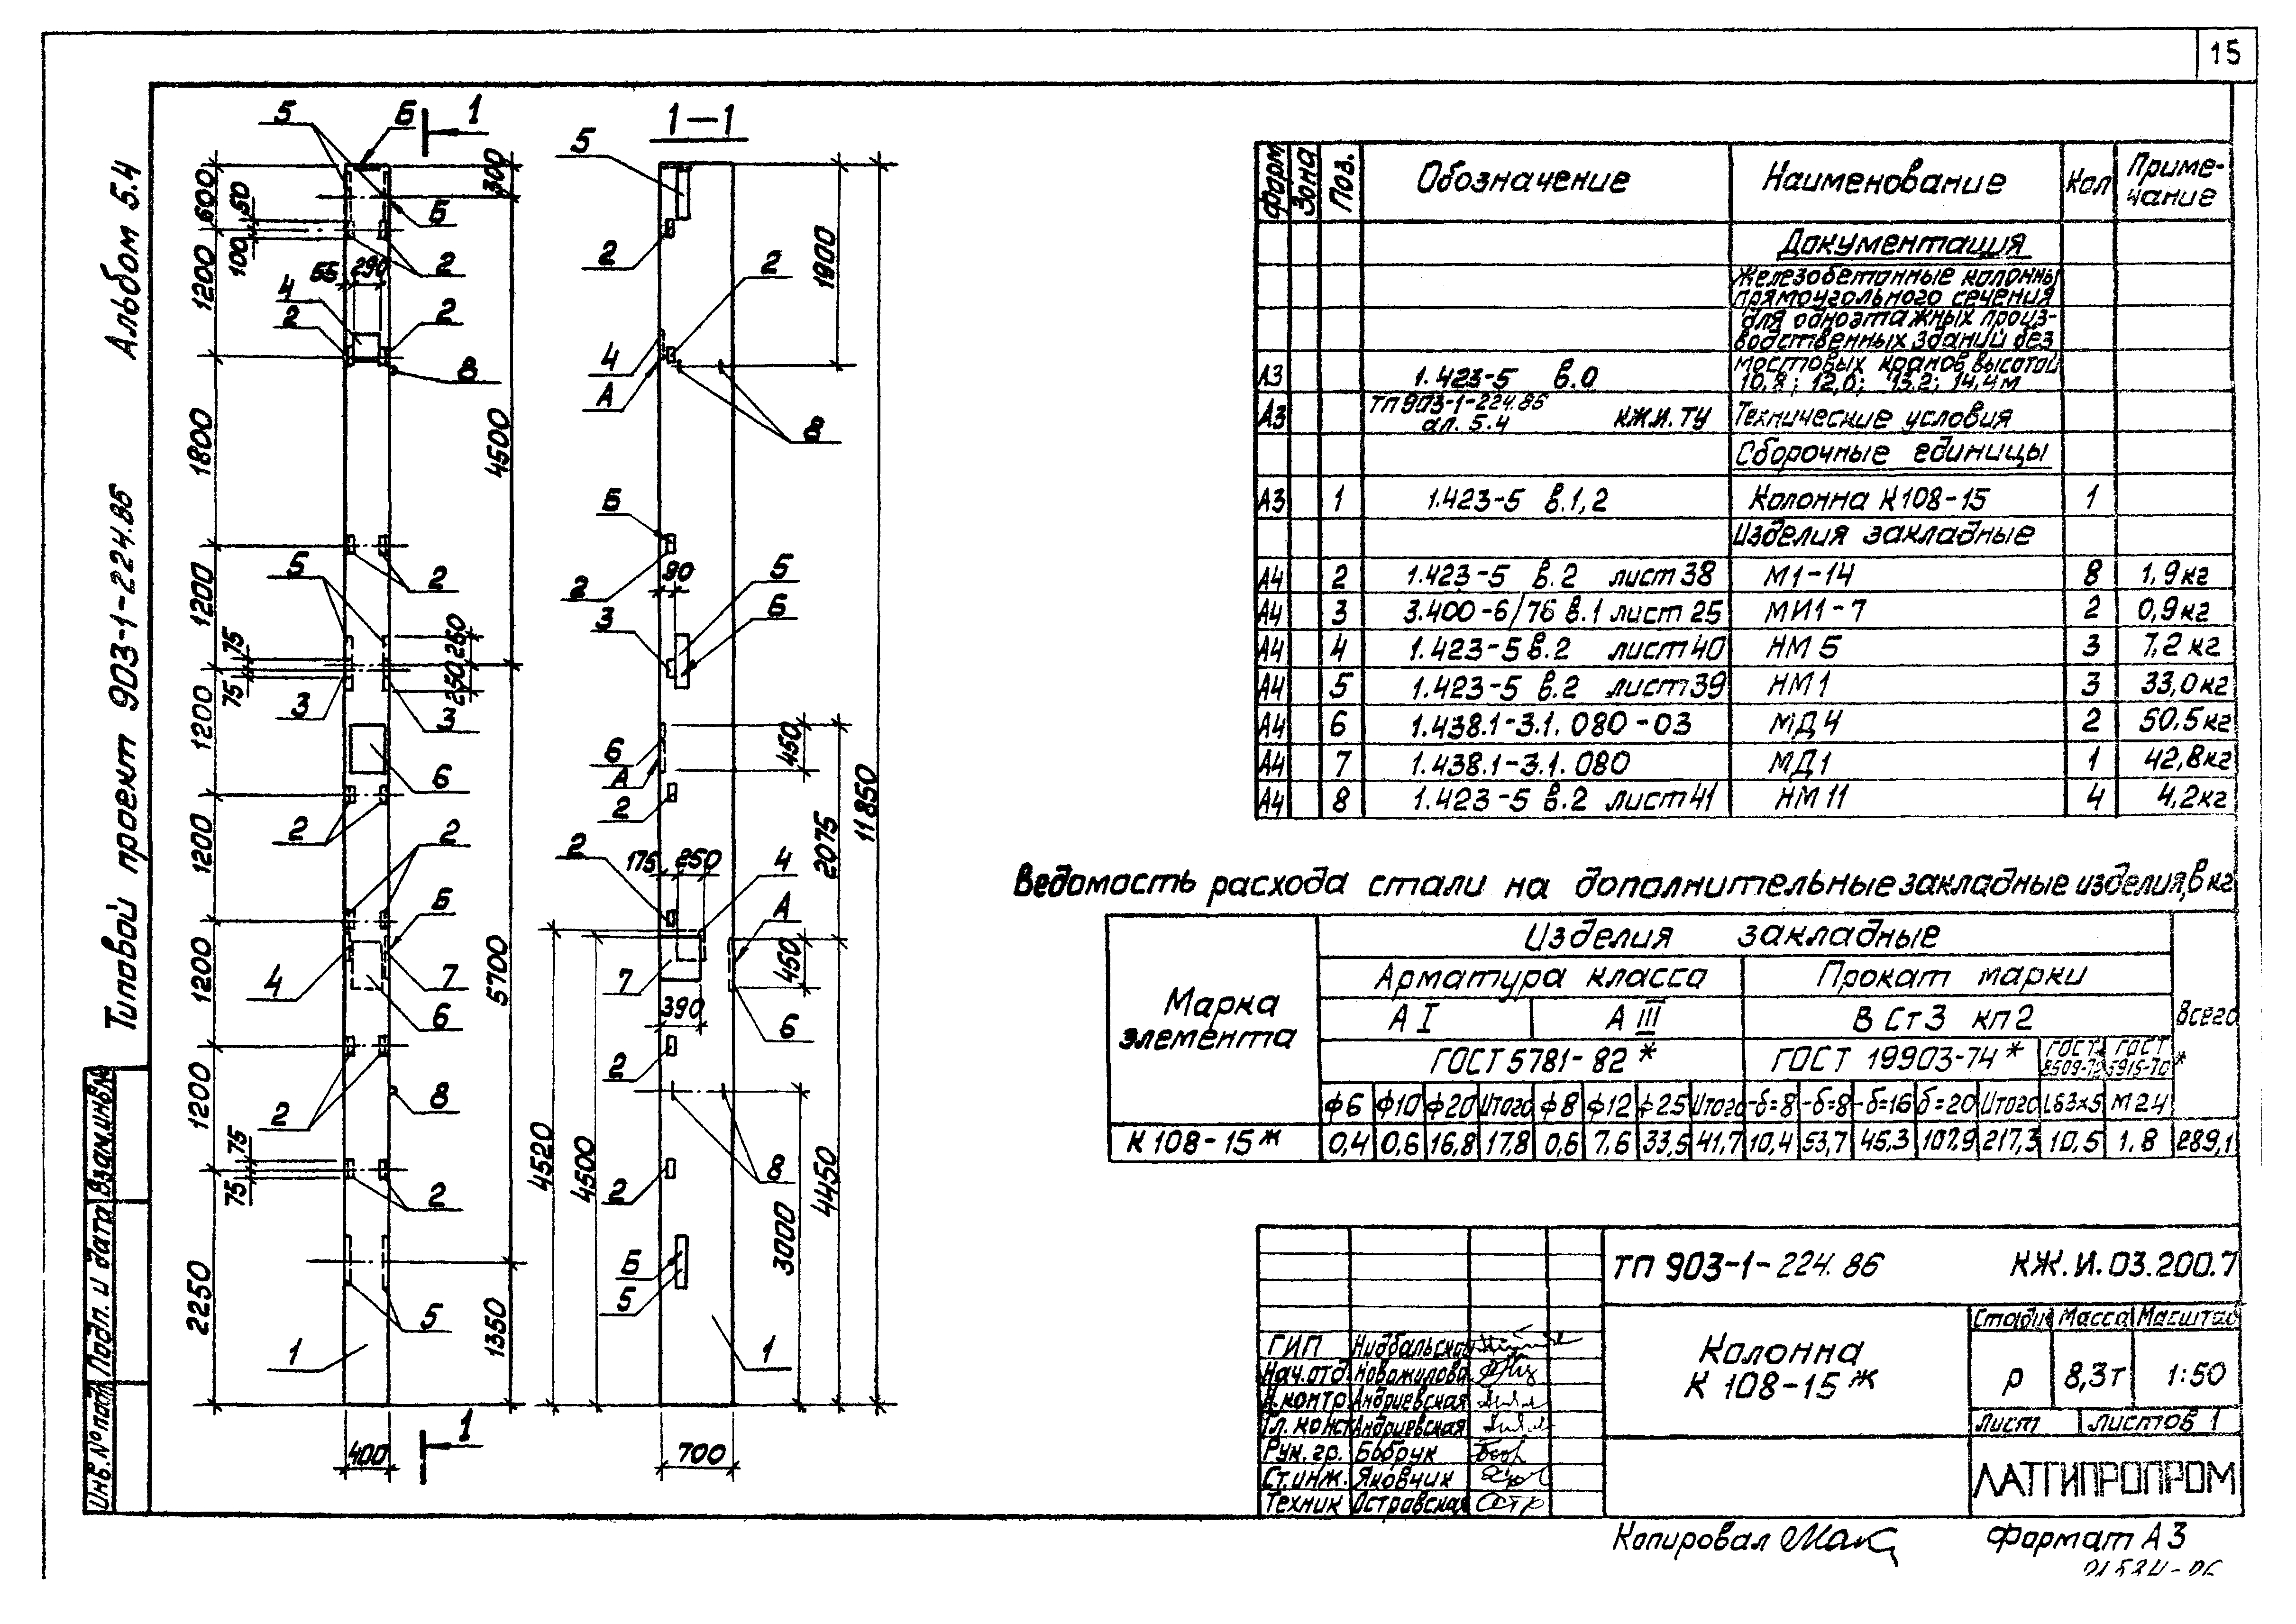 15
Альбом 5.4
Типовой проект 903-1-224.86
Взам.инв.№
Подп. и дата
Инв.№ подл.
5 Б 1
1-1
5
600 50 100 1200 1800 1200 75 75 1200 1200 1200 1200 75 75 2250
300 4500 250 250 5700 1350
5 2 55 290 4 2 2 8
5 2 3 3 6 2 2 Б 4 7 6 2 8 2 5 1
400
1
2 2 4 А 8 Б 2 90 5 Б 3 6 А 2 2 175 250 4 А 7 390 6 2 8 2 Б 5 1
1800 450 2075 11850 450 4520 4500 3000 4450
700
Форм Зона Поз. Обозначение Наименование Кол Приме-
чание
Документация
Железобетонные колонны
прямоугольного сечения
для одноэтажных произ-
водственных зданий без
мостовых кранов высотой
А3 1.423-5 в.0 10,8; 12,0; 13,2; 14,4м
А3 ТП 903-1-224.86 ал. 5.4 КЖ.И.ТУ Технические условия
Сборочные единицы
А3 1 1.423-5 в.1,2 Колонна К108-15 1
Изделия закладные
А4 2 1.423-5 в.2 лист 38 М1-14 8 1,9кг
А4 3 3.400-6/76 в.1 лист 25 МИ1-7 2 0,9кг
А4 4 1.423-5 в.2 лист 40 НМ 5 3 7,2 кг
А4 5 1.423-5 в.2 лист 39 НМ1 3 33,0кг
А4 6 1.438.1-3.1.080-03 МД4 2 50.5кг
А4 7 1.438.1-3.1.080 МД1 1 42,8кг
А4 8 1.423-5 в.2 лист 41 НМ 11 4 4,2кг
Ведомость расхода стали на дополнительные закладные изделия, в кг
Марка элемента
Изделия закладные
Всего
Арматура класса Прокат марки
А I А III В Ст3 кп2
ГОСТ 5781-82* ГОСТ 19903-74* ГОСТ 8509-72 ГОСТ 5915-70*
ф6 ф10 ф20 Итого ф8 ф12 ф25 Итого -δ=8 -δ=8 -δ=16 δ=20 Итого L63x5 М24
К 108-15ж 0,4 0,6 16,8 17,8 0,6 7,6 33,5 41,7 10,4 53,7 45,3 107,9 217,3 10,5 1,8 289,1
ТП 903-1-224.86 КЖ.И.03.200.7
Колонна
К 108-15ж
Стадия Масса Масштаб
Р 8,3т 1:50
Лист Листов 1
ЛАТГИПРОПРОМ
ГИП Нидбальской
Нач.отд. Новожилова
Н.контр. Андриевская
Гл. конст Андриевская
Рук. гр. Бобрук
Ст.инж. Яковчик
Техник Островская
Копировал Формат А3